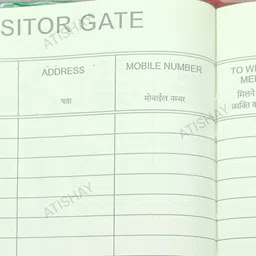 SITOR GATE
ADDRESS
पता
MOBILE NUMBER
मोबाईल नम्बर
TO W
ME
मिलने
व्यक्ति क
ATISHAY
ATISHAY
ATISHAY